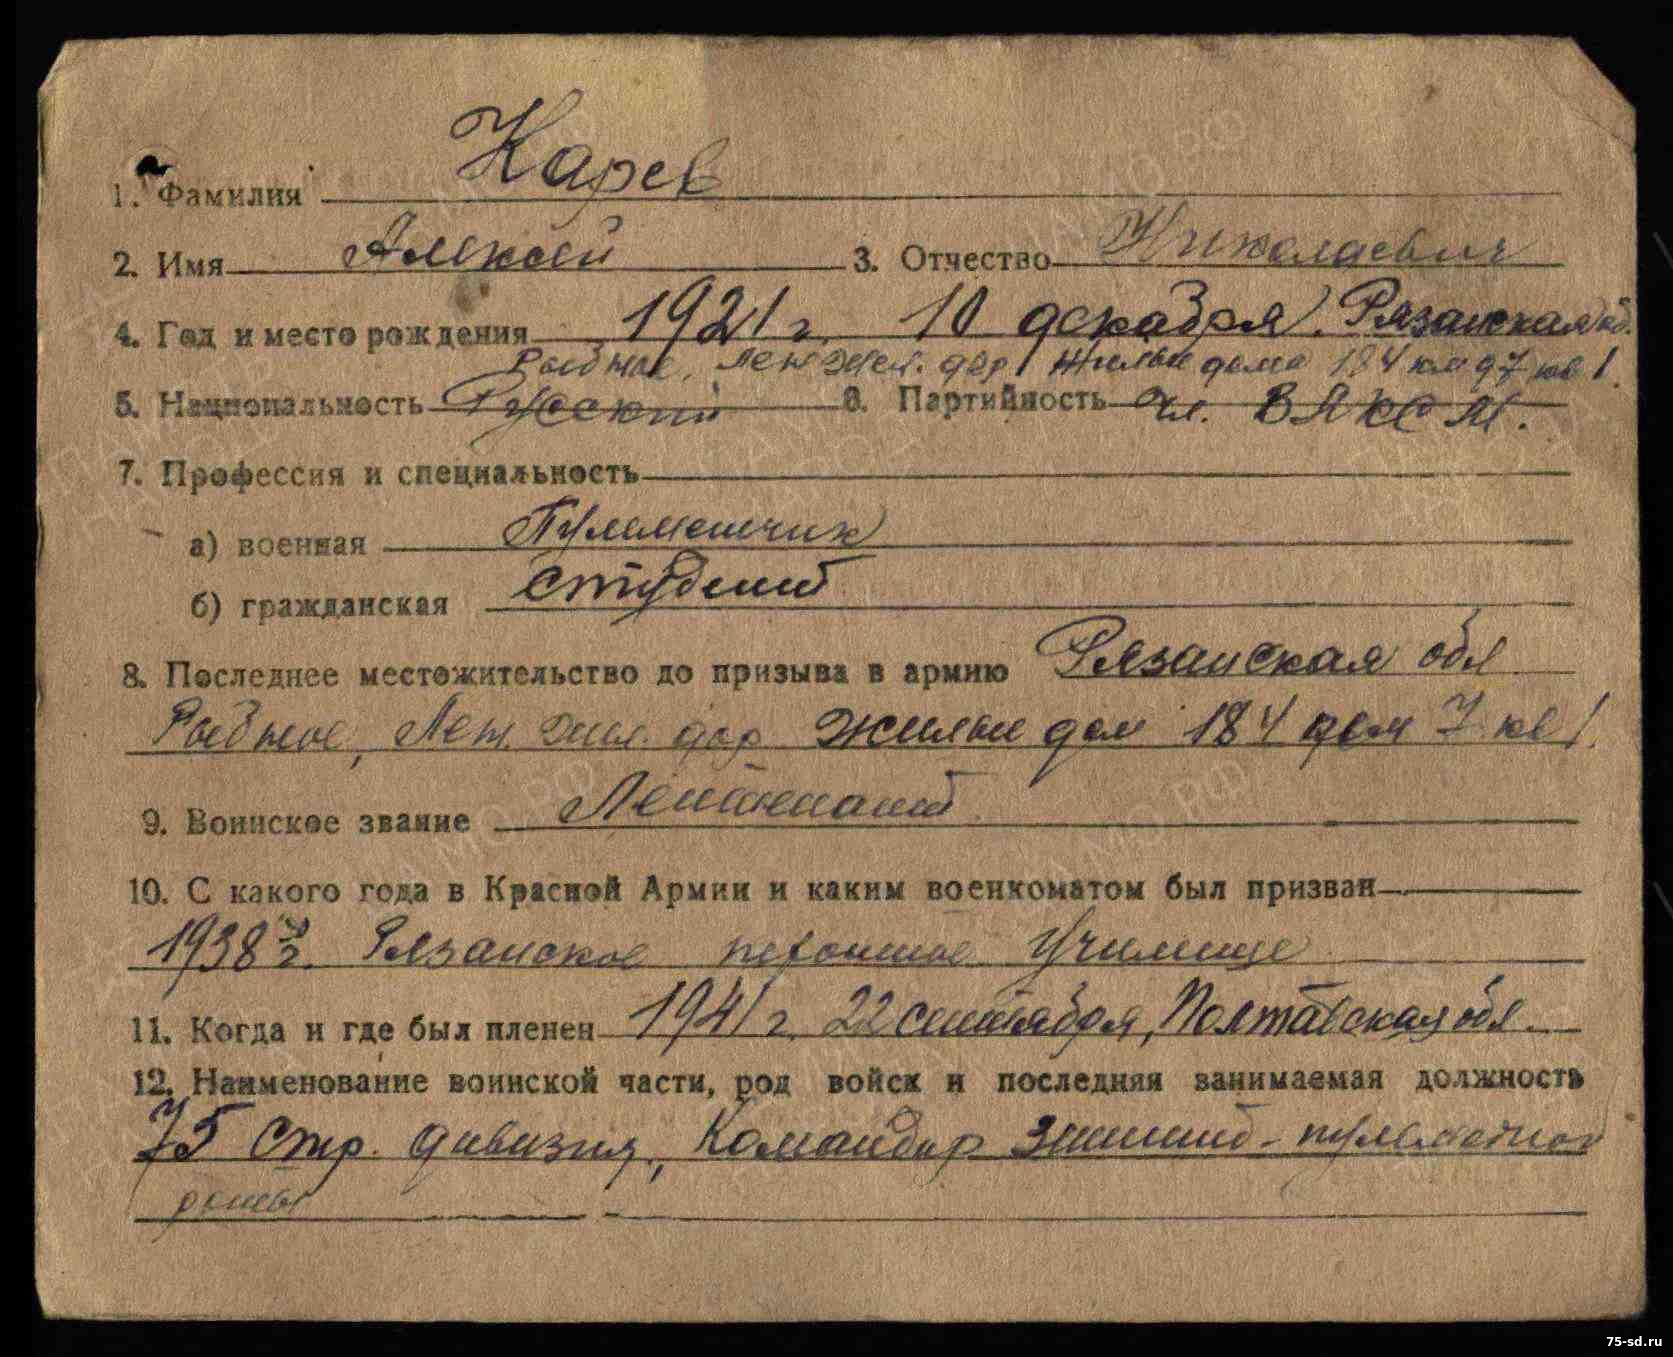 1. Фамилия Карев
2. Имя Алексей 3. Отчество Николаевич
4. Год и место рождения 1921 г. 10 декабря. Рязанская об.
Рыбное, Лен жел. дор Жилые дома 184 км д 7 кв 1.
5. Национальность Русский 6. Партийность Чл. ВЛКСМ.
7. Профессия и специальность
а) военная Пулеметчик
б) гражданская студент
8. Последнее местожительство до призыва в армию Рязанская обл
Рыбное, Лен. жел. дор Жилые дом 184 дом 7 кв 1.
9. Воинское звание Лейтенант
10. С какого года в Красной Армии и каким военкоматом был призван
1938 г. Рязанское пехотное Училище
11. Когда и где был пленен 1941 г. 22 сентября, Полтавская обл.
12. Наименование воинской части, род войск и последняя занимаемая должность
75 стр. дивизия, Командир зенитно-пулеметной
роты
75-sd.ru